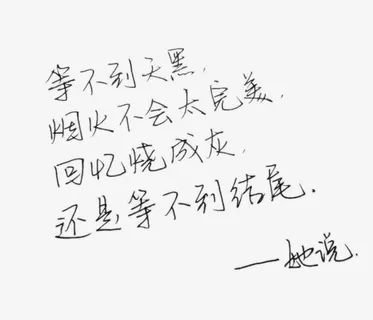 等不到天黑，
烟火不会太完美，
回忆烧成灰，
还是等不到结尾．
——她说．